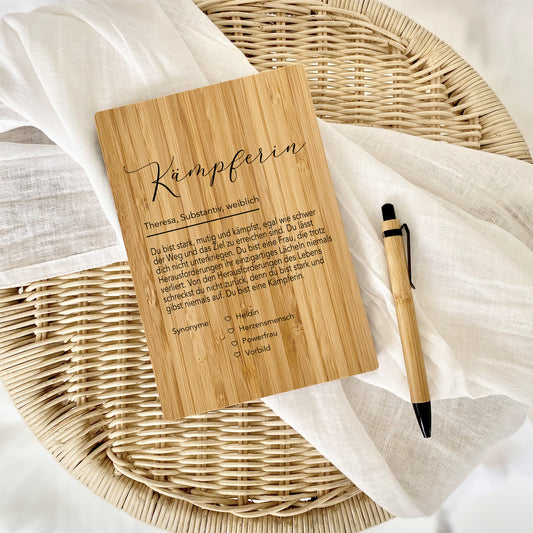 Kämpferin
Theresa, Substantiv, weiblich
Du bist stark, mutig und kämpfst, egal wie schwer
der Weg und das Ziel zu erreichen sind. Du lässt
dich nicht unterkriegen. Du bist eine Frau, die trotz
Herausforderungen ihr einzigartiges Lächeln niemals
verliert. Von den Herausforderungen des Lebens
schreckst du nicht zurück, denn du bist stark und
gibst niemals auf. Du bist eine Kämpferin.
Synonyme: Heldin
Herzensmensch
Powerfrau
Vorbild